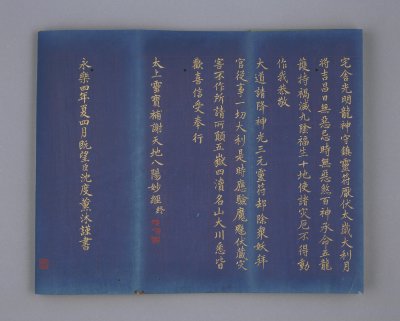 宅舍光明龍神守鎮靈符厭伏太歲大利月
將吉昌日無惡忌時無惡煞百神承命五龍
護持禍滅九陰福生十地使諸灾厄不得動
作我恭敬
大道請降神光三元靈符却除衆妖拜
官從事一切大利是時應驗魔魅伏藏灾
害不作所請所願五嶽四瀆名山大川悉皆
歡喜信受奉行
太上靈寶補謝天地八陽妙經終
永樂四年夏四月既望臣沈度薰沐謹書